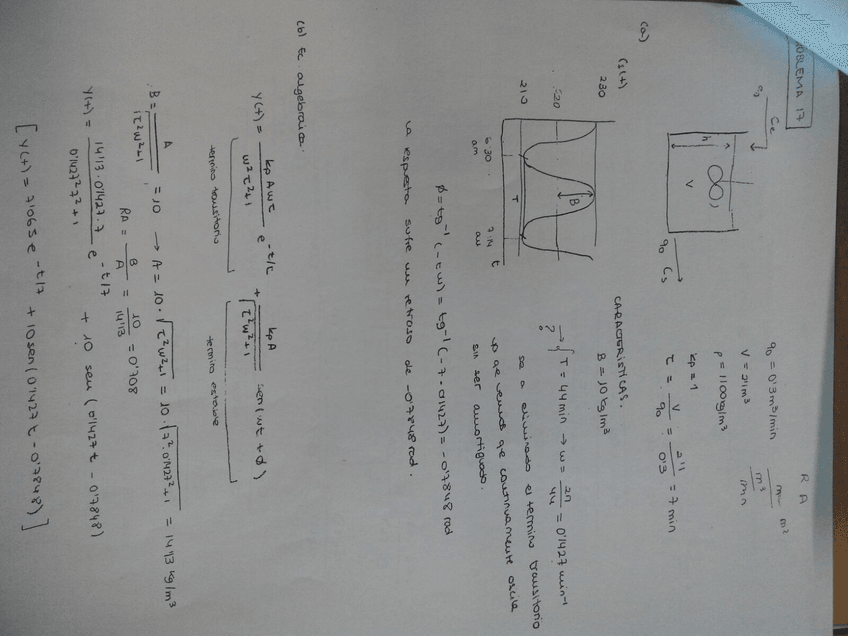 ROBLEMA 17
(a)
q0 Ce
h
V
q0 Cs
q0 = 0'3 m³/min
V = 2'1 m³
ρ = 1100 kg/m³
kp = 1
τ = V/q0 = 2'1/0'3 = 7 min
R A
m³
min
(s(t)
230
220
210
B
T
6 30 am
7 14 am
t
CARACTERISTICAS.
B = 10 kg/m³
→ T = 44 min → w = 2π/44 = 0'1427 min⁻¹
?
se a eliminado el termino transitorio
ya que vemos qe continuamente oscila
sin ser amortiguado.
φ = tg⁻¹(-τw) = tg⁻¹(-7·0'1427) = -0'7848 rad
la respuesta sufre un retraso de -0'7848 rad.
(b) Ec algebraica.
Y(t) = kp A w τ / w²τ²+1 e^-t/τ + kp A / √τ²w²+1 sen(wt + φ)
termino transitorio
termino estable
B = A / √τ²w²+1 = 10 → A = 10·√τ²w²+1 = 10·√7²·0'1427²+1 = 14'13 kg/m³
RA = B/A = 10/14'13 = 0'708
Y(t) = 14'13·0'1427·7 / 0'1427²7²+1 e^-t/7 + 10 sen(0'1427t - 0'7848)
[Y(t) = 7'065 e^-t/7 + 10 sen(0'1427t - 0'7848)]